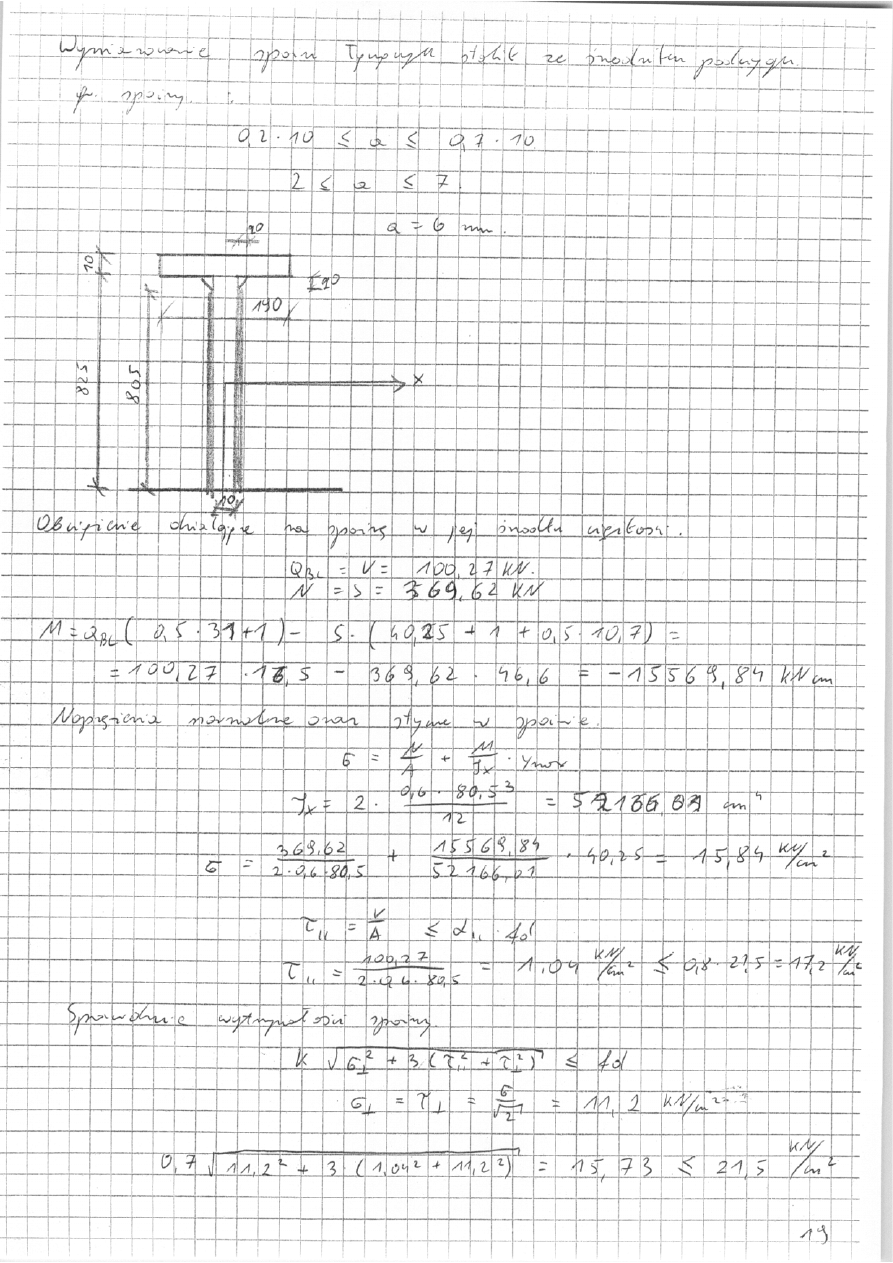 Wymiarowanie spoin łączących stolik ze środnikiem podciągu
gr. spoiny :
0,2 · 10 ≤ a ≤ 0,7 · 10
2 ≤ a ≤ 7
a = 6 mm.
10
10
10
190
825
805
x
10
Obciążenie działające na spoinę w jej środku ciężkości.
Q_BL = V = 100,27 KN.
N = S = 369,62 KN
M = Q_BL ( 0,5 · 31 + 1 ) - S · ( 40,25 + 1 + 0,5 · 10,7 ) =
= 100,27 · 16,5 - 369,62 · 46,6 = -15569,84 kNcm
Naprężenia normalne oraz styczne w spoinie.
σ = N/A + M/Jx · ymax
Jx = 2 · 0,6 · 80,5³/12 = 52166,01 cm⁴
σ = 369,62/2·0,6·80,5 + 15569,84/52166,01 · 40,25 = 15,84 kN/cm²
τ_II = V/A ≤ α_II · fd
τ_II = 100,27/2·0,6·80,5 = 1,04 kN/cm² ≤ 0,8 · 21,5 = 17,2 kN/cm²
Sprawdzenie wytrzymałości spoiny.
K √σ⊥² + 3 (τ_II² + τ⊥²) ≤ fd
σ⊥ = τ⊥ = σ/√2 = 11,2 kN/cm²
0,7 √11,2² + 3 · (1,04² + 11,2²) = 15,73 ≤ 21,5 kN/cm²
19